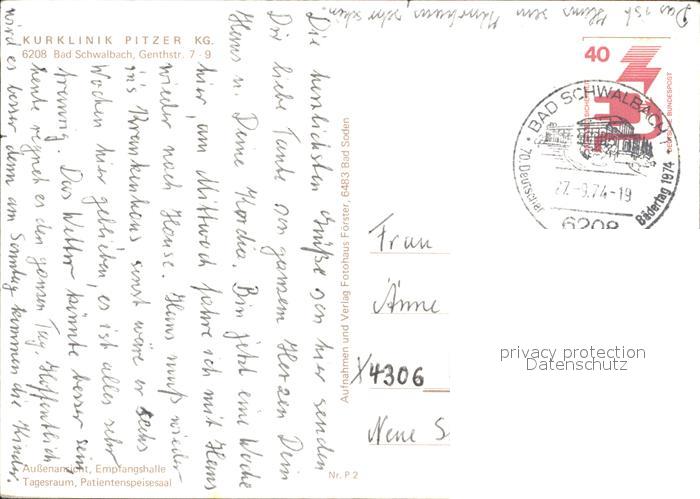 KURKLINIK PITZER KG.
6208 Bad Schwalbach, Genthstr. 7 - 9
Die herzlichsten Grüße von hier senden
Dir liebe Tante von ganzem Herzen Dein
Hans u. Deine Herdia. Bin jetzt eine Woche
hier, am Mittwoch fahre ich mit Hans
wieder nach Hause. Hans muß wieder
ins Krankenhaus sonst wäre er sechs
Wochen hier geblieben, es ist alles sehr
traurig. Das Wetter könnte besser sein
heute regnet es den ganzen Tag. Hoffentlich
wird es besser denn am Sonntag kommen die Kinder.
Das ist Hans sein sehr schön.
Außenansicht, Empfangshalle
Tagesraum, Patientenspeisesaal
Nr. P 2
Aufnahmen und Verlag Fotohaus Förster, 6483 Bad Soden
40
DEUTSCHE BUNDESPOST
BAD SCHWALBACH
70. Deutscher Bädertag 1974
27.-9.74-19
6208
Frau
Änne
4306
Neue S
privacy protection
Datenschutz